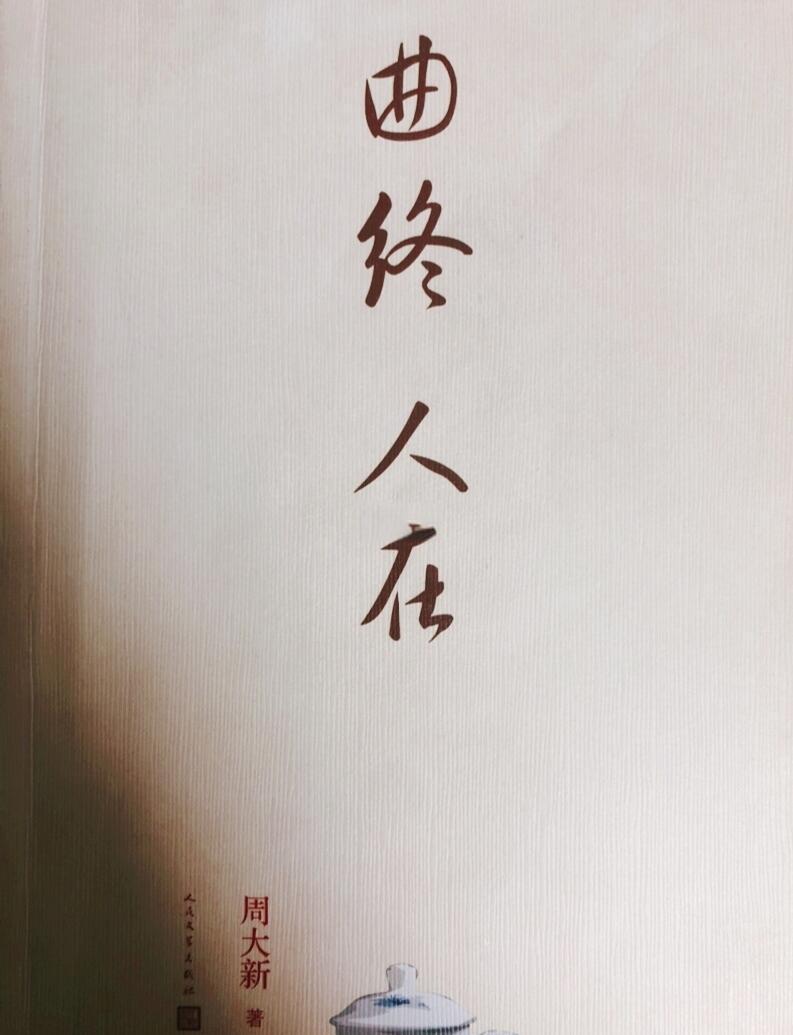 曲终人在
周大新 著
人民文学出版社